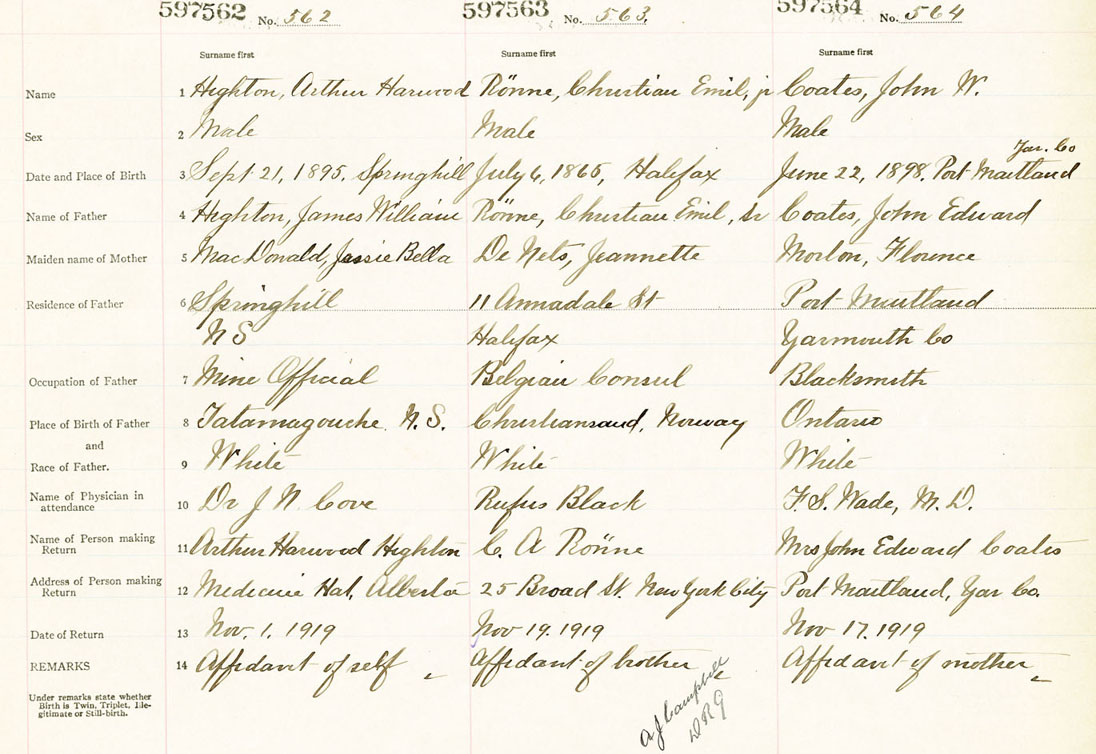 597562 No. 562 597563 No. 563. 597564 No. 564
Surname first Surname first Surname first
Name 1 Highton, Arthur Harwood Rönne, Christian Emil, jr Coates, John W.
Sex 2 Male Male Male
Yar. Co
Date and Place of Birth 3 Sept 21, 1895. Springhill July 6, 1865, Halifax June 22, 1898. Port Maitland
Name of Father 4 Highton, James William Rönne, Christian Emil, Sr Coates, John Edward
Maiden name of Mother 5 MacDonald, Jessie Bella De Nets, Jeannette Morton, Florence
Residence of Father 6 Springhill 11 Annadale St Port Maitland
N S Halifax Yarmouth Co
Occupation of Father 7 Mine Official Belgian Consul Blacksmith
Place of Birth of Father 8 Tatamagouche. N.S. Christiansand, Norway Ontario
and
Race of Father. 9 White White White
Name of Physician in attendance 10 Dr J N Cove Rufus Black F.S. Wade, M.D.
Name of Person making Return 11 Arthur Harwood Highton C. A Rönne Mrs John Edward Coates
Address of Person making Return 12 Medicine Hat, Alberta 25 Broad St. New York City Port Maitland, Yar Co.
Date of Return 13 Nov. 1. 1919 Nov 19. 1919 Nov 17. 1919
REMARKS 14 Affidavit of self Affidavit of brother Affidavit of mother
Under remarks state whether
Birth is Twin, Triplet, Ille-
gitimate or Still-birth.
A J Campbell
DRG